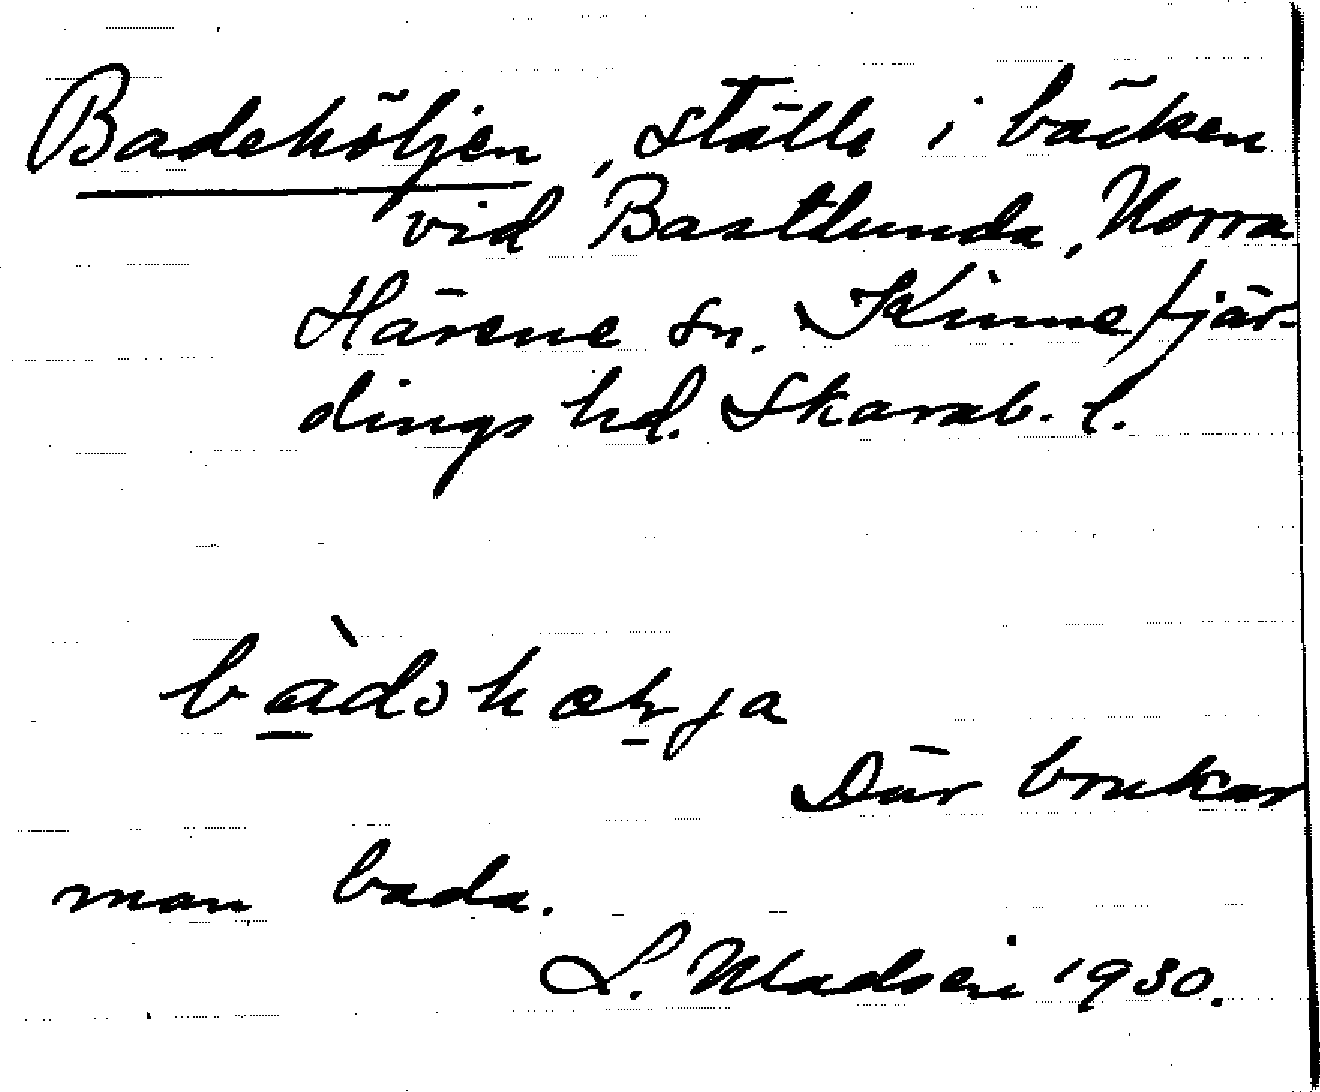 Badehöljen, ställe i bäcken
vid Bastlunda, Norra
Härene sn. Kinnefjär-
dings hd. Skarab. l.
Där brukar
man bada.
L. Madsén 1930.